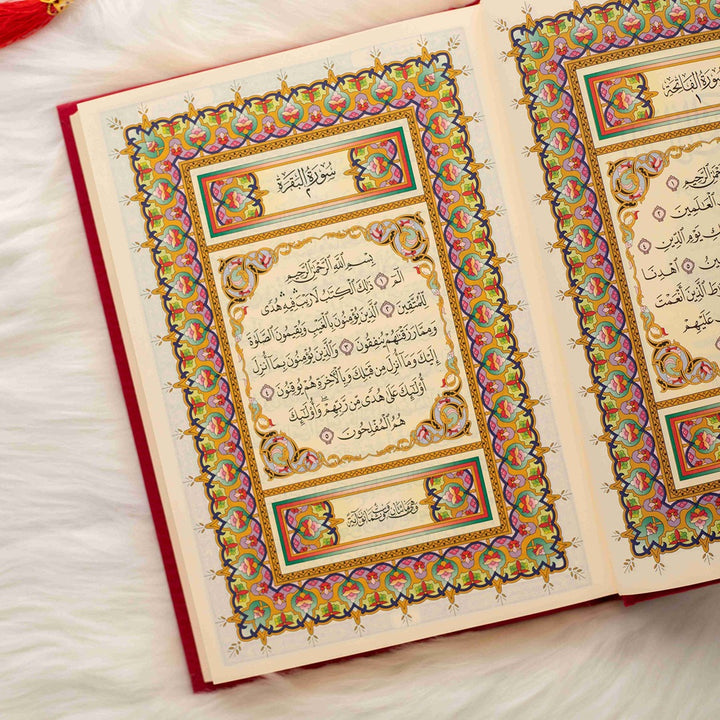 سُورَةُ الفَاتِحَةِ
١
الرَّحِيمِ ١
الْعَٰلَمِينَ ٢
يَوْمِ الدِّينِ ٤
٥ اهْدِنَا
الَّذِينَ أَنْعَمْتَ
عَلَيْهِمْ
سُورَةُ البَقَرَةِ
٢
بِسْمِ اللَّهِ الرَّحْمَٰنِ الرَّحِيمِ
الٓمٓ ١ ذَٰلِكَ الْكِتَٰبُ لَا رَيْبَ ۛ فِيهِ ۛ هُدًى
لِّلْمُتَّقِينَ ٢ الَّذِينَ يُؤْمِنُونَ بِالْغَيْبِ وَيُقِيمُونَ الصَّلَوٰةَ
وَمِمَّا رَزَقْنَٰهُمْ يُنفِقُونَ ٣ وَالَّذِينَ يُؤْمِنُونَ بِمَآ أُنزِلَ
إِلَيْكَ وَمَآ أُنزِلَ مِن قَبْلِكَ وَبِالْآخِرَةِ هُمْ يُوقِنُونَ ٤
أُو۟لَٰٓئِكَ عَلَىٰ هُدًى مِّن رَّبِّهِمْ ۖ وَأُو۟لَٰٓئِكَ
هُمُ الْمُفْلِحُونَ ٥